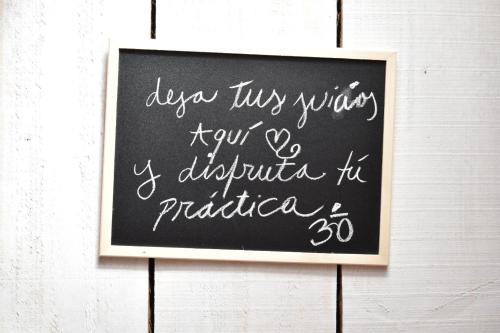 deja tus juicios
Aquí
y disfruta tú
práctica.